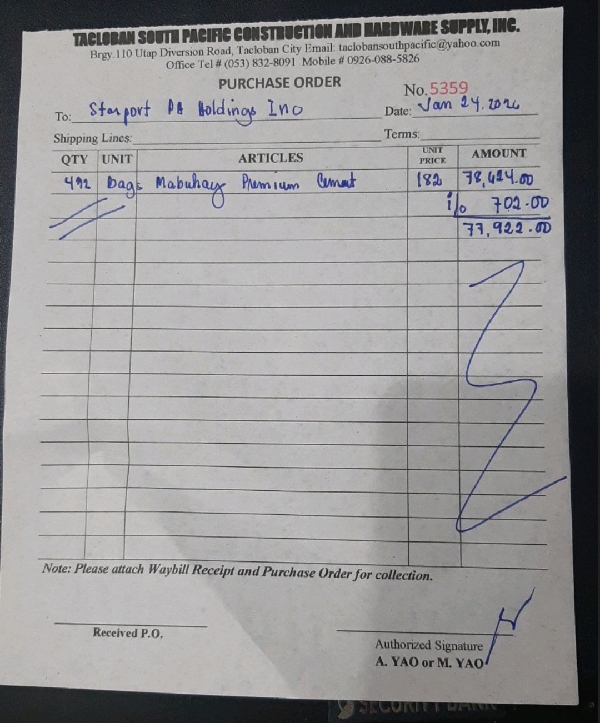 TACLOBAN SOUTH PACIFIC CONSTRUCTION AND HARDWARE SUPPLY, INC.
Brgy.110 Utap Diversion Road, Tacloban City Email: taclobansouthpacific@yahoo.com
Office Tel # (053) 832-8091 Mobile # 0926-088-5826
PURCHASE ORDER
No. 5359
To: Starport PH Holdings Inc Date: Jan 24, 2026
Shipping Lines: Terms:
QTY UNIT ARTICLES UNIT PRICE AMOUNT
432 Bags Mabuhay Premium Cement 182 78,624.00
1% 702.00
77,922.00
Note: Please attach Waybill Receipt and Purchase Order for collection.
Received P.O.
Authorized Signature
A. YAO or M. YAO
SECURITY BANK